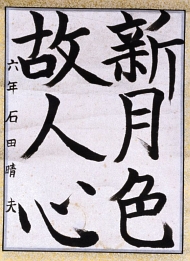 新月色
故人心
六年 石田晴夫